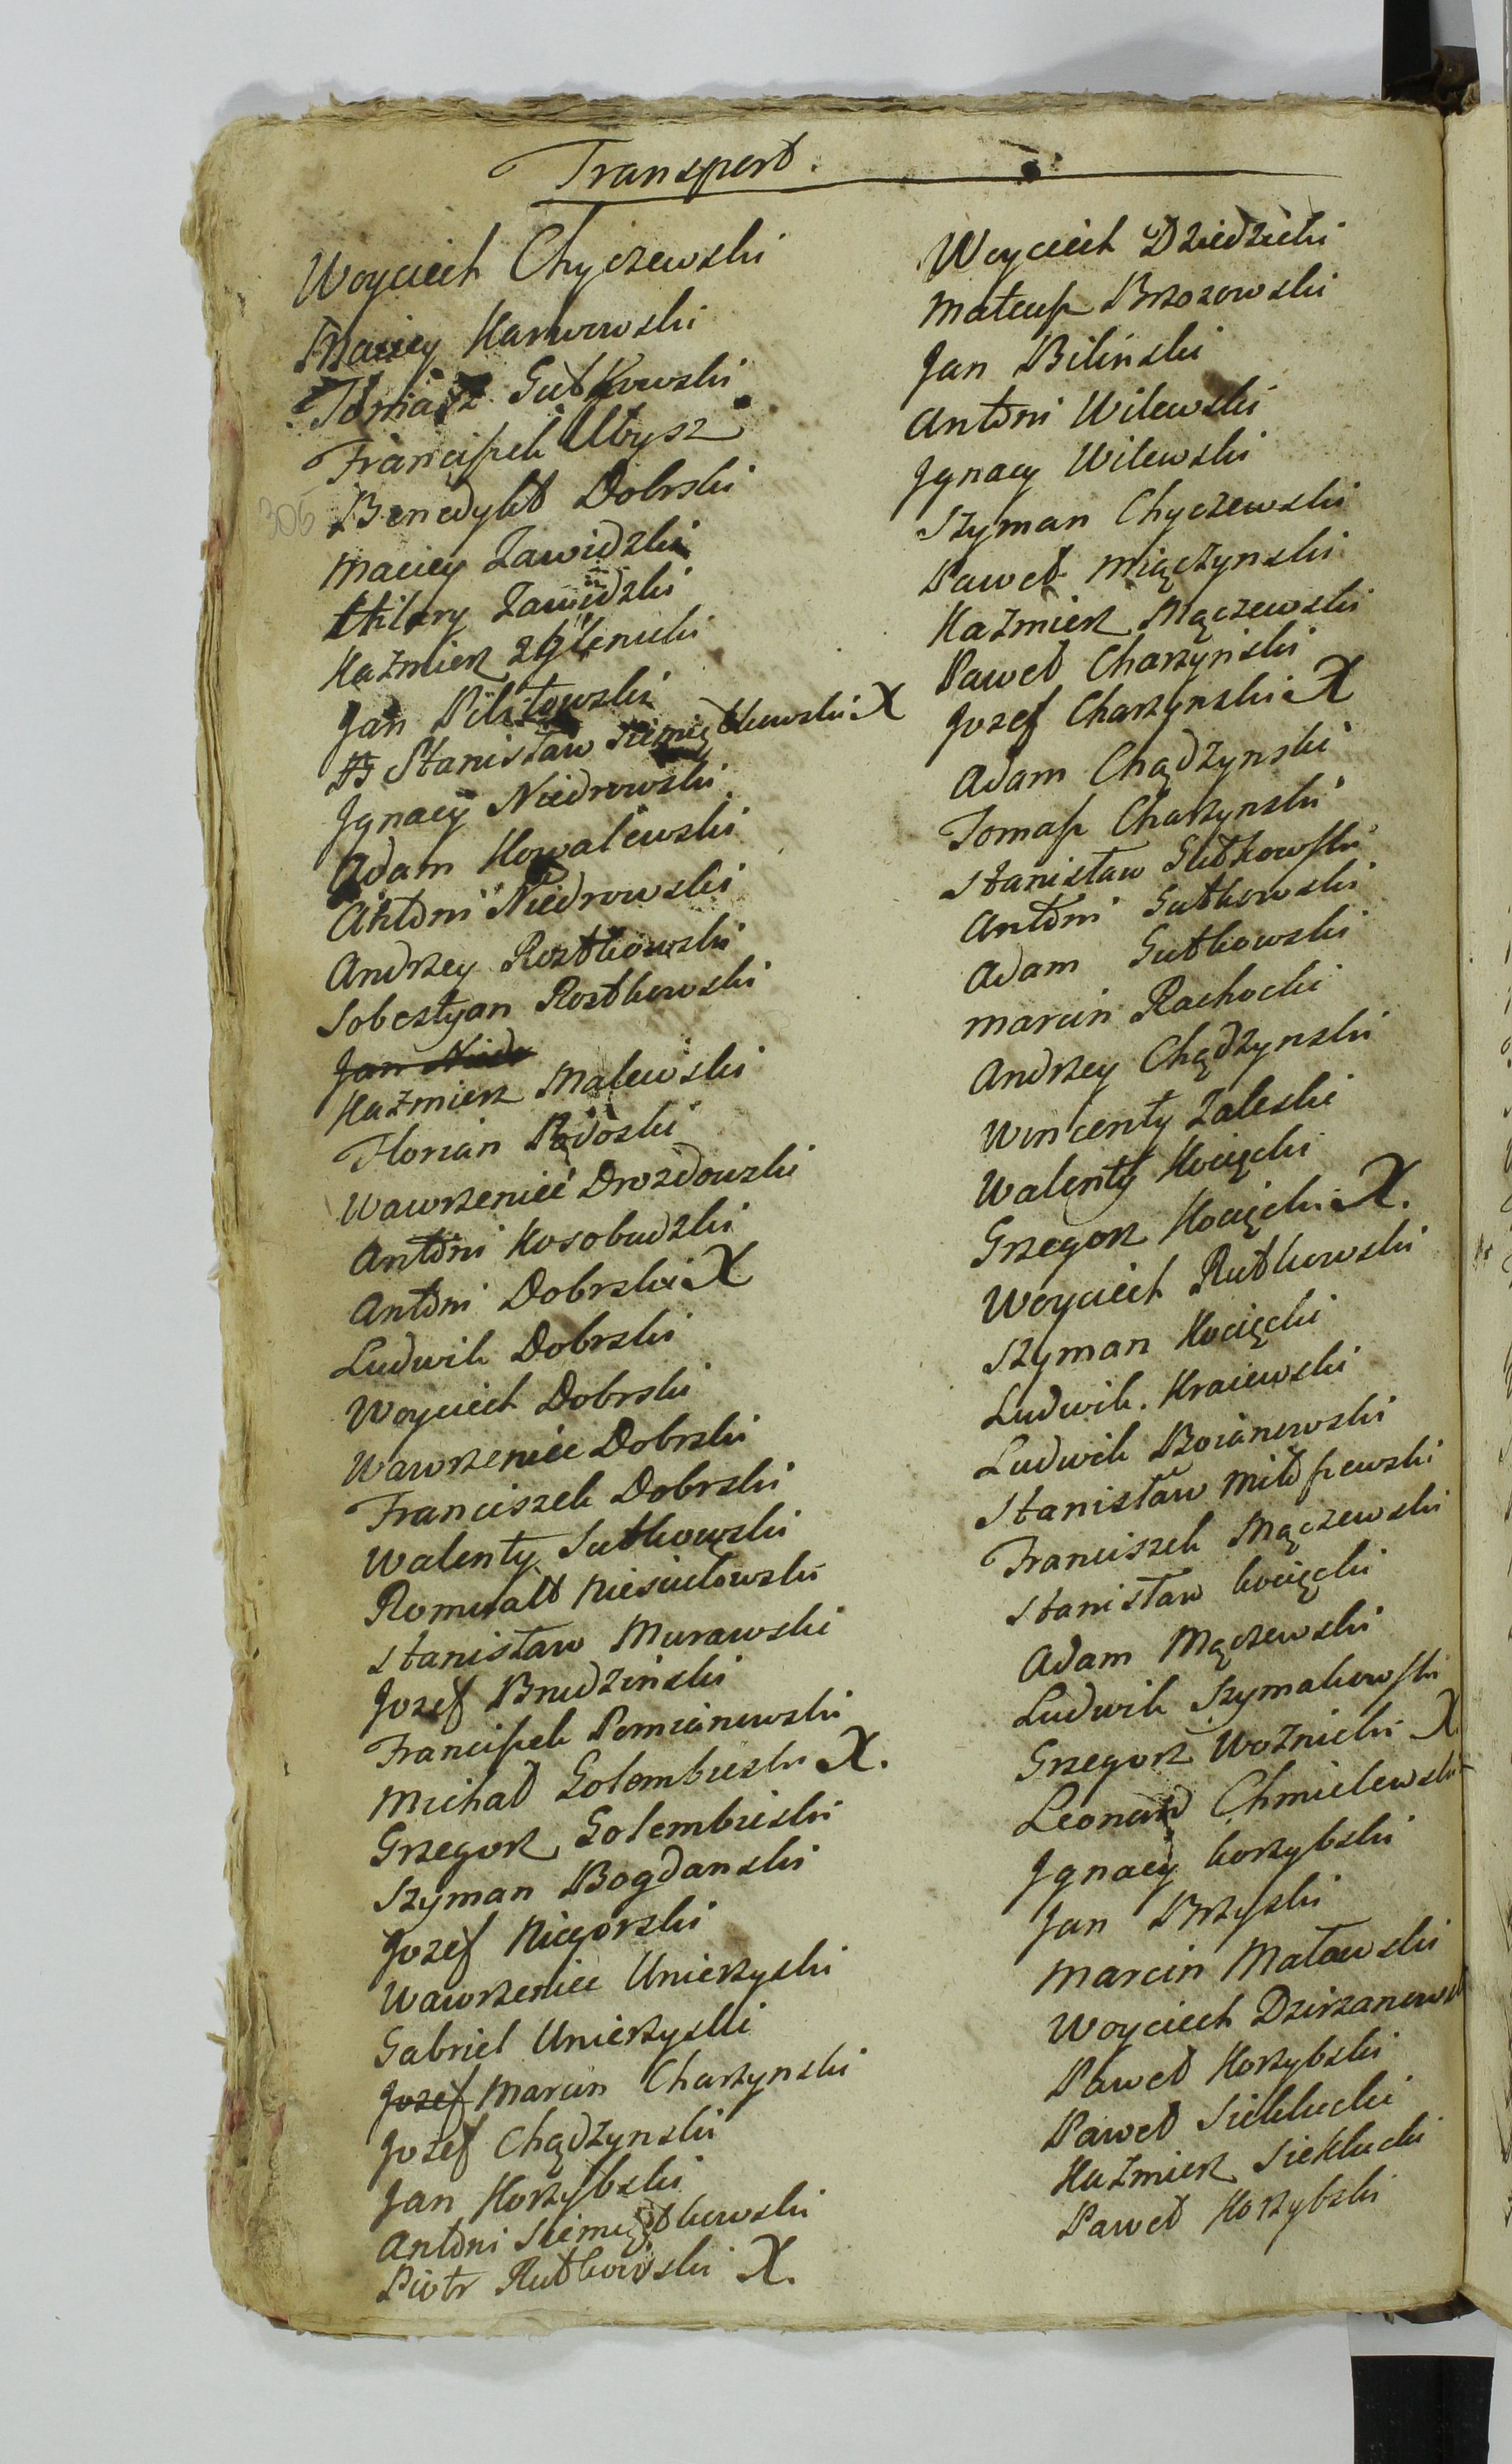 Transport.
Woyciech Chyczewski
Maciey Karwowski
Tomasz Gutkowski
Franciszek Ubysz
305
Benedykt Dobrski
Maciey Zawidzki
Hilary Zawidzki
Kazmierz Zglenicki
Jan Pilitowski
Stanisław Siemiątkowski X
Jgnacy Niedrowski
Adam Kowalewski
Antoni Niedrowski
Andrzey Rostkowski
Sobestyan Rostkowski
Jan Nied
Kazmierz Malewski
Florian Podoski
Wawrzeniec Drozdowski
Antoni Kosobudzki
Antoni Dobrski X
Ludwik Dobrski
Woyciech Dobrski
Wawrzeniec Dobrski
Franciszek Dobrski
Walenty Sutkowski
Romuald Niesiułowski
Stanisław Murawski
Jozef Brudzinski
Franciszek Pomianowski
Michał Golembieski X.
Grzegorz Golembieski
Szyman Bogdanski
Jozef Niegorski
Wawrzeniec Unierzyski
Gabriel Unierzyski
Jozef Marcin Charzynski
Jozef Chądzynski
Jan Korzybski
Antoni Siemiątkowski
Piotr Rutkowski X.
Woyciech Dziedzicki
Mateusz Brzozowski
Jan Bilinski
Antoni Wilewski
Jgnacy Wilewski
Szyman Chyczewski
Paweł Miączynski
Kazmierz Mączewski
Paweł Charzynski
Jozef Charzynski X
Adam Chądzynski
Tomasz Charzynski
Stanisław Gutkowski
Antoni Gutkowski
Adam Gutkowski
Marcin Rachocki
Andrzey Chądzynski
Wincenty Zaleski
Walenty Kocięcki
Grzegorz Kocięcki X.
Woyciech Rutkowski
Szyman Kocięcki
Ludwik Kraiewski
Ludwik Boianowski
Stanisław Miłoszewski
Franciszek Mączewski
Stanisław Kocięcki
Adam Mączewski
Ludwik Szymakowski
Grzegorz Woznicki X
Leonard Chmielewski
Jgnacy Korzybski
Jan Brzyski
Marcin Matowski
Woyciech Dzierzanowsk
Paweł Korzybski
Paweł Siekłucki
Kazmierz Siekłucki
Paweł Korzybski